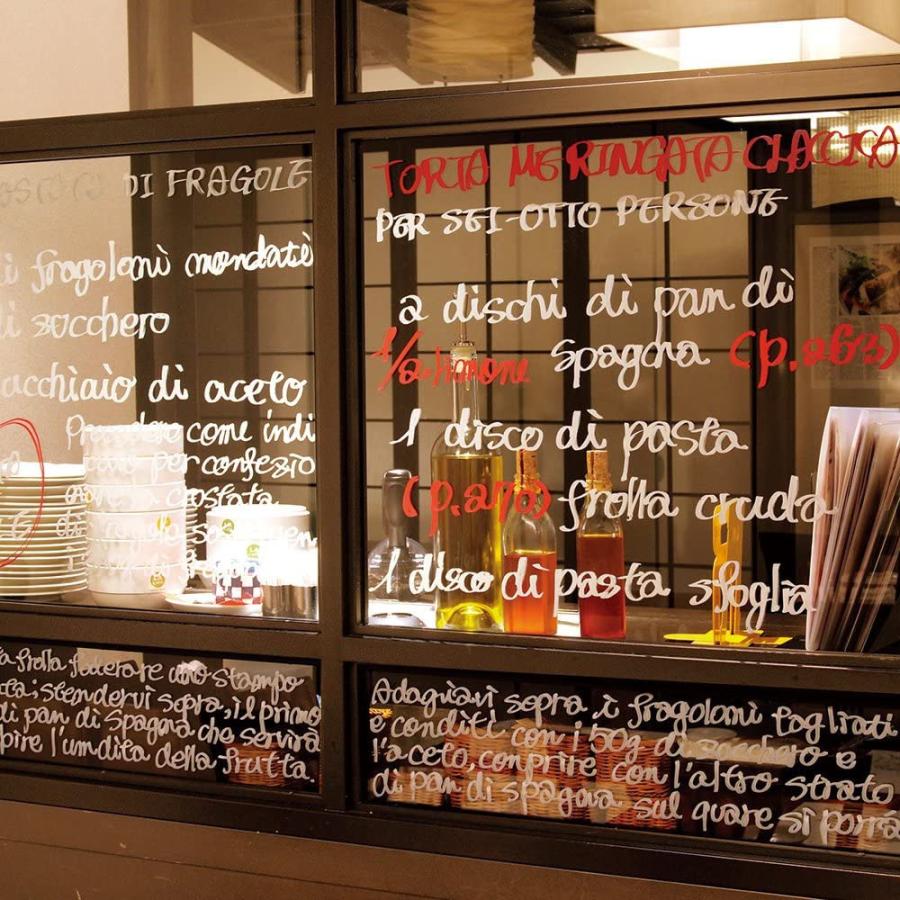 DI FRAGOLE
di fragoloni mondati
di zucchero
acchiaio di aceto
Prendere come indi
per confezio
costata
TORTA MERINGATA CLASSICA
PER SEI-OTTO PERSONE
2 dischi di pan di
1/2 limone spagna (p.263)
1 disco di pasta
(p.270) frolla cruda
1 disco di pasta sfoglia
ta frolla foderare uno stampo
ta; stendervi sopra, il primo
di pan di Spagna che servirà
pire l'umdita della frutta.
Adagiavi sopra i fragoloni tagliati
e conditi con i 50g di zucchero e
l'aceto, conprire con l'altro strato
di pan di spagna sul quare si porrà